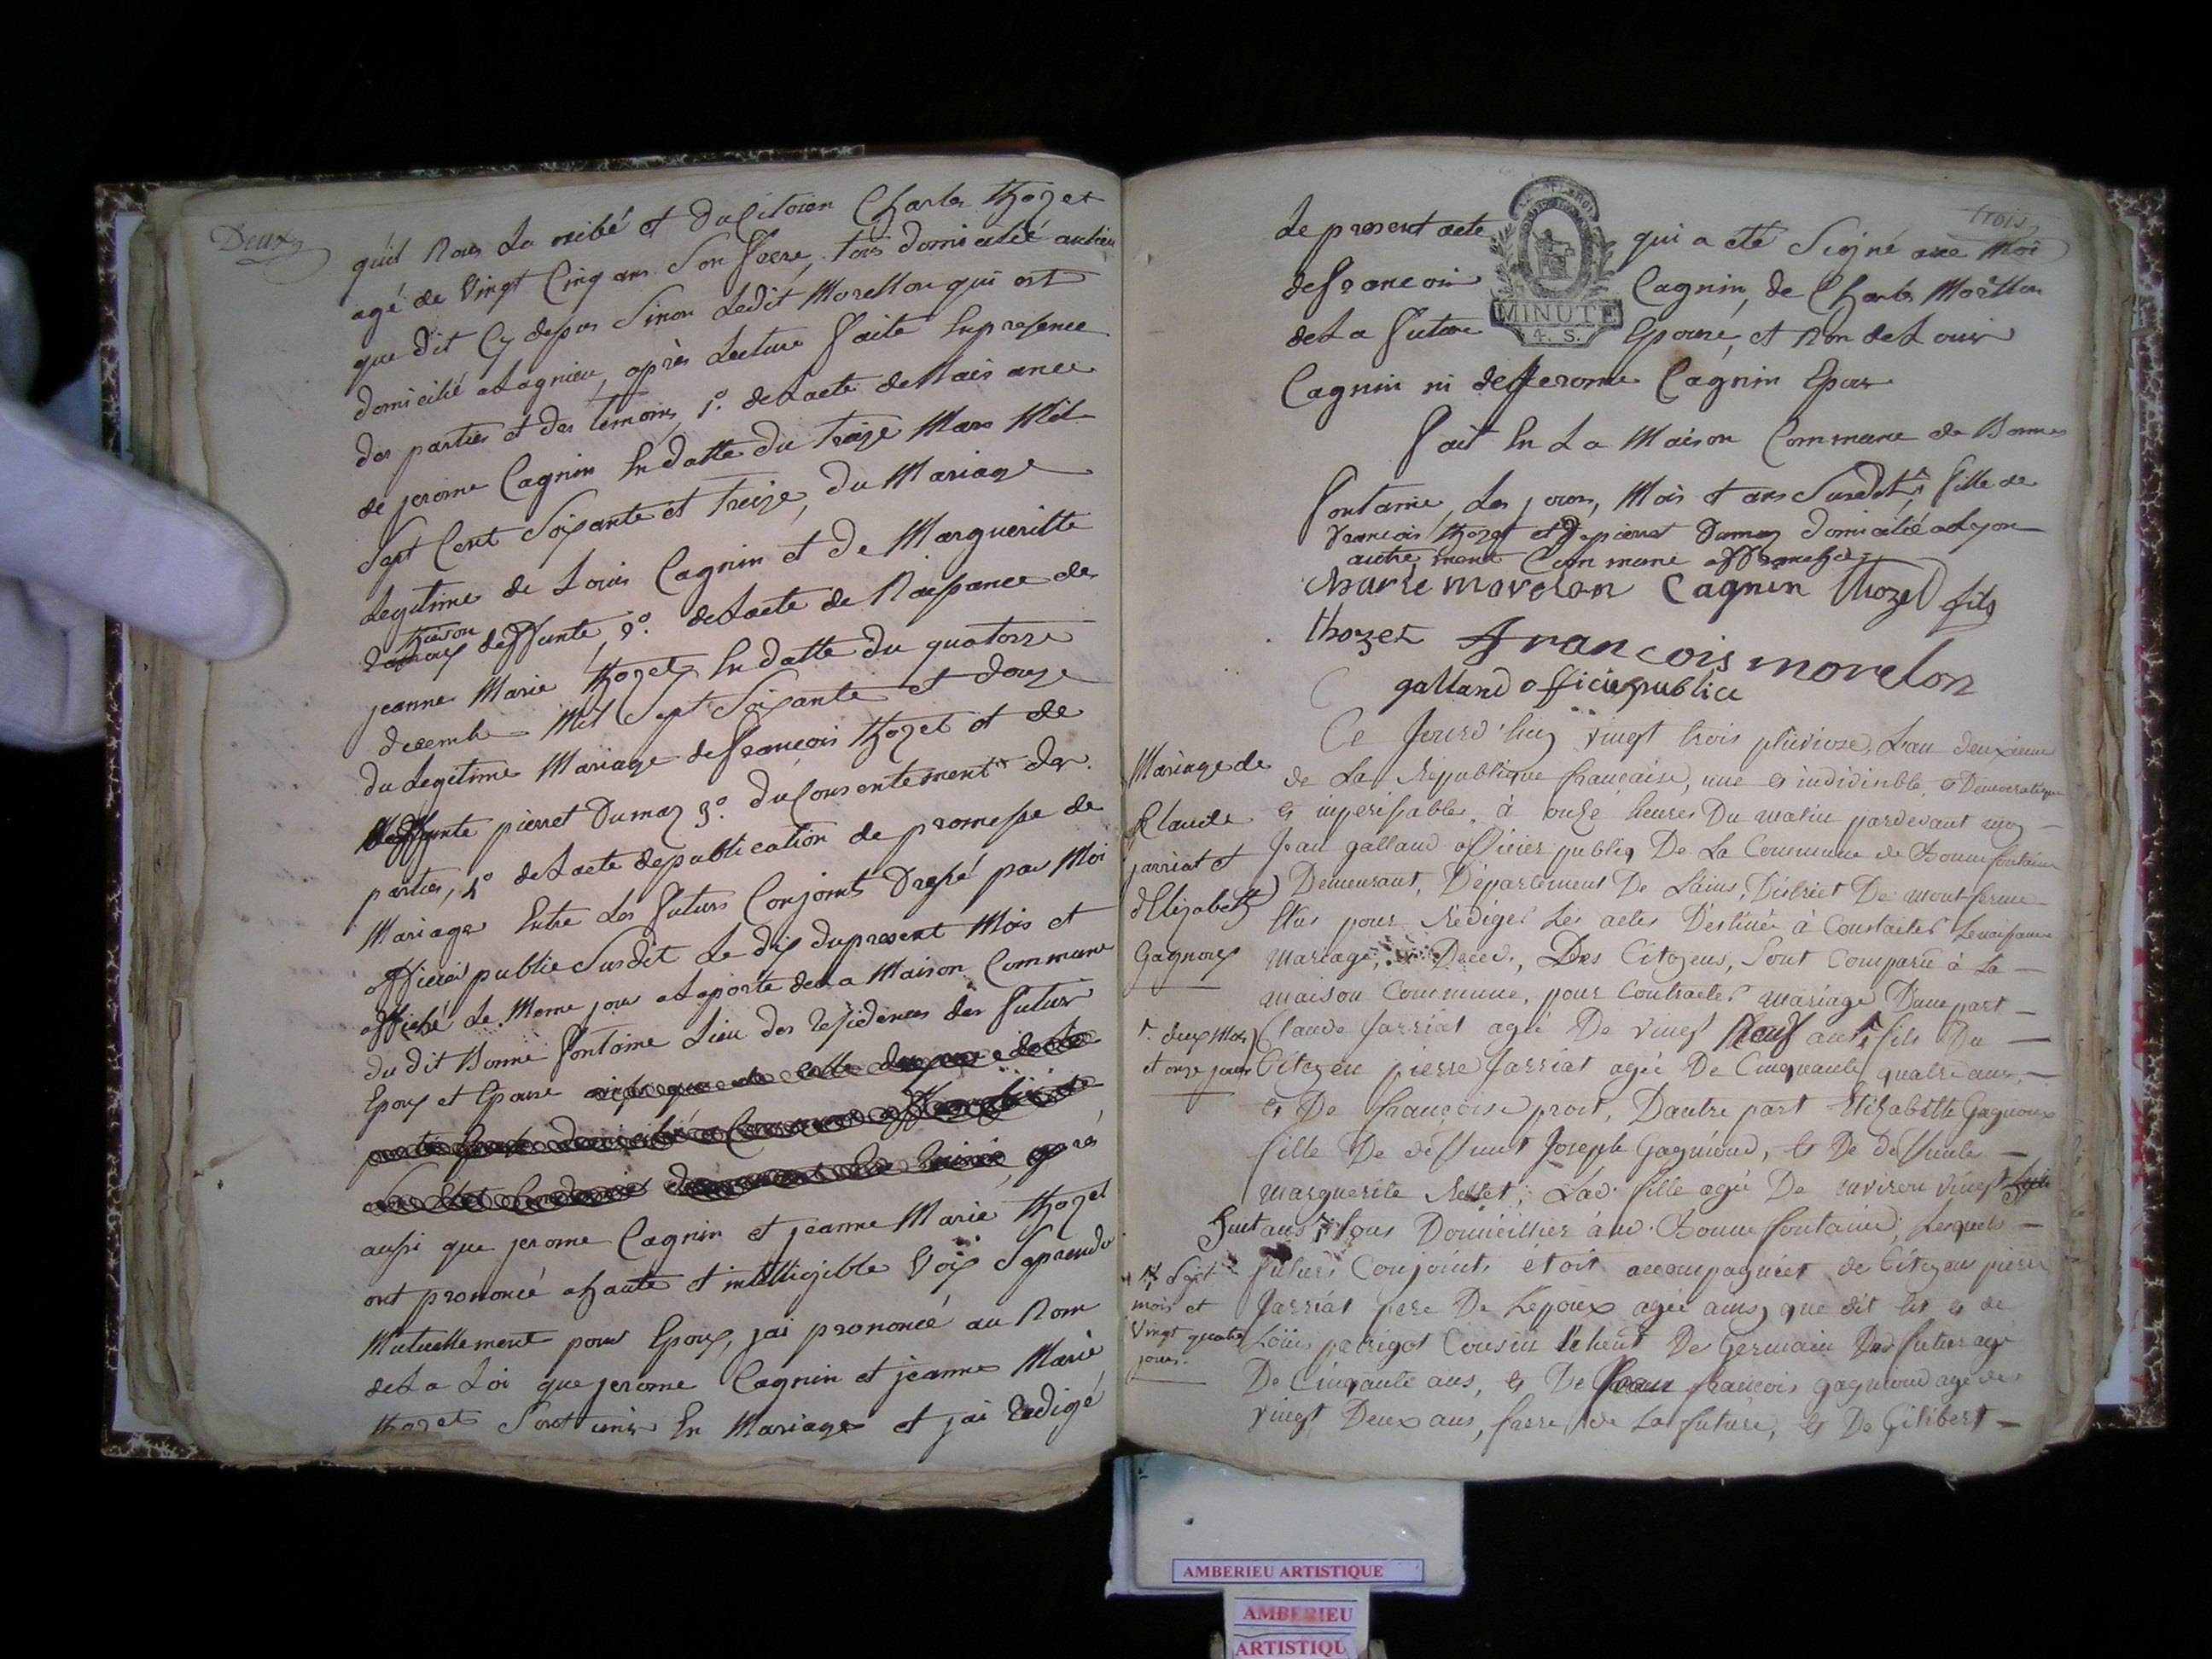 Deux
qu'il Nous La exibé et du Citoien Charles thozet
agé de Vingt Cinq ans Son frere, tous domicilié au lieu
que dit Cy dessus Sinon Ledit Morellon qui est
domicilié a Lagnieu, après Lecture faite En presence
des parties et des temoins, 1º. de Lacte de Naissance
de jerome Cagnin En datte du treize Mars Mil
Sept Cent Soixante et treize, du Mariage
Legitime de Louis Cagnin et de Margueritte
deffunte, 2º. de Lacte de Naissance de
jeanne Marie thozet En datte du quatorze
decembre Mil Sept Soixante et douze
du Legitime Mariage de francois thozet et de
deffunte pierret Dumaz 3º. du Consentement des
parties, 4º de Lacte de publication de promesse de
Mariage Entre Les futurs Conjoints Dressé par Moi
officier public Susdit Le dix du present Mois et
affiché Le Meme jour a La porte de La Maison Commune
du dit Bonne fontaine Lieu des Residences des futurs
Epoux et Epouse
après
aussi que jerome Cagnin et jeanne Marie thozet
ont prononcé a haute et intelligible Voix Se prendre
Mutuellement pour Epoux, jai prononcé au Nom
de La Loi que jerome Cagnin et jeanne Marie
thozet Sont unis En Mariage et jai Redigé
trois
Le present acte qui a été Signé avec Moi
de francois Cagnin, de Charles Morellon
de La future Epouse, et Non de Louis
Cagnin ni de Jerome Cagnin Epoux
MINUTE
4. S.
fait En La Maison Commune de Bonne
fontaine, Les jours, Mois et ans Susdit fille de
francois thozet et de pierret Dumaz domicilié a Lyon
autrement Commune affranchie
Charle morelon Cagnin thozet fils
thozet francois morelon
galland officier publice
Ce Jourd'huy vingt trois pluviose, L'an deuxieme
de La République française, une et indivisible, Democratique
et imperissable, à onze heures Du matin pardevant moy
Jean galland officier public De La Commune de Bonne fontaine
Demeurant, Département De Lains, District De mont ferme
Elus pour Rédiger Les actes Destinés à Constater Les naissance
mariage, Deced, Des Citoyens, Sont Comparu à La
maison Commune, pour Contracter mariage D'une part
Claude Jarriat agé De vingt Neuf ans fils Du
Citoyen pierre Jarriat agée De Cinquante quatre ans,
et De françoise prost, Dautre part Elizabette Gagnoux
fille De deffunt Joseph Gagnioud, et De deffunte
marguerite Rellet, Lad. fille agée De environ vingt
huit ans tous Domicillier à ud. Bonne fontaine, Lesquels
futurs Conjoints étoit accompagnées de Citoyens pierre
Jarriat pere De Lepoux agée ainsy que dit Est et de
Louis perrigot Cousin De Germain Dud futur agé
De Cinquante ans, et De Jean francois gagnioud agé de
vingt Deux ans, frere de La future, et De Gilibert
Mariage de
Claude
jarriat et
d'Elizabeth
Gagnoux
deux Mois
et onze jours
Sept
mois et
Vingt quatre
jours.
AMBERIEU ARTISTIQUE
AMBERIEU
ARTISTIQU